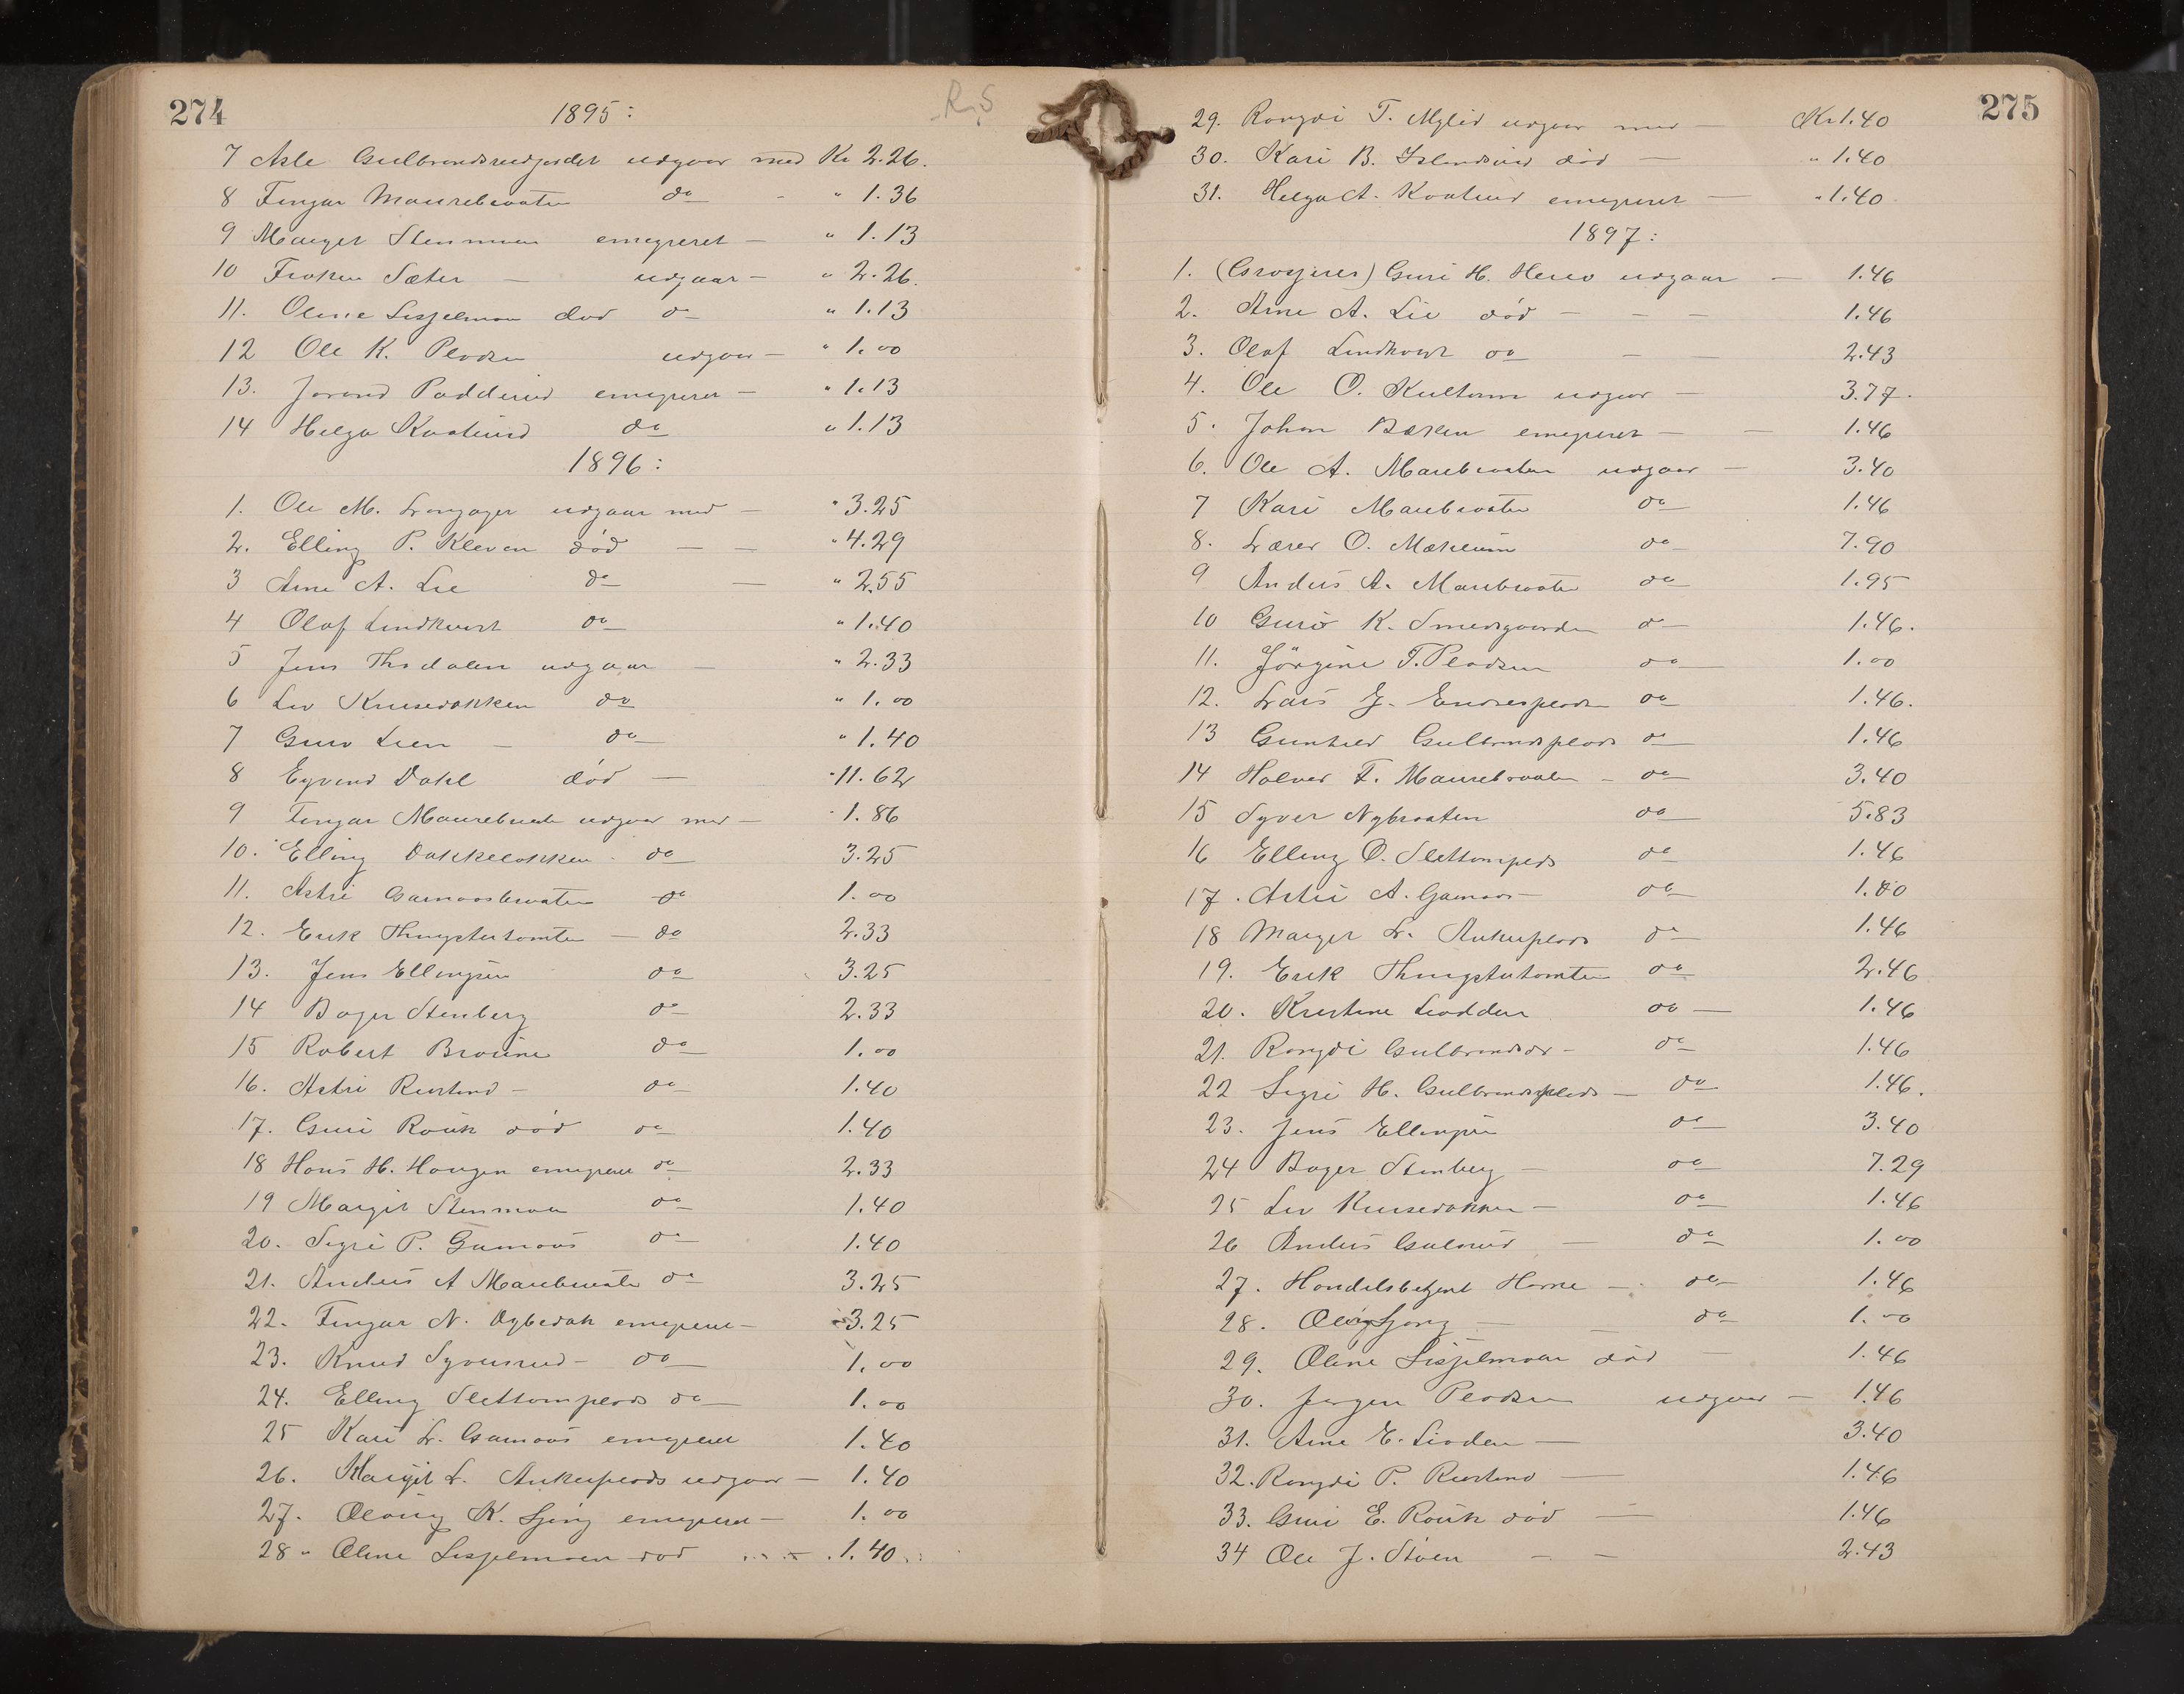 274
1895:
R.S
7 Asle Gulbrandsrudjordet udgaar med Kr 2.26.
8 Fingar Maurebraaten do " 1.36
9 Margit Stenmoen emigreret — " 1.13
10 Frøken Sæter — udgaar — " 2.26.
11. Oline Lisjelmoen død do " 1.13
12 Ole K. Pladsen udgaar — " 1.00
13. Jorand Padderud emigreret — " 1.13
14 Helga Kaalrud do " 1.13
1896:
1. Ole M. Langager udgaar med — " 3.25
2. Elling P. Kleven død — — " 4.29
3 Arne A. Lie do — " 2.55
4 Olaf Lindkvist do " 1.40
5 Jens udgaar — " 2.33
6 Liv Krusedokken do " 1.00
7 Guro Lien — do " 1.40
8 Eyvind Dahl død — " 11.62
9 Fingar Maurebraaten udgaar med — " 1.86
10. Elling Dokkeløkken do 3.25
11. Astri Garnaasbraaten do 1.00
12. Erik Thingstutomten — do 2.33
13. Jens Ellingsen do 3.25
14 Bager Stenberg do 2.33
15 Robert do 1.00
16. Astri Rustand — do 1.40
17. Guri Rouk død do 1.40
18 Hans H. Haugen emigreret do 2.33
19 Margit Stenmoen do 1.40
20. Sigri P. Garnaas do 1.40
21. Anders A Maurebraaten do 3.25
22. Fingar N. emigreret — 3.25
23. Knud Syversrud — do 1.00
24. Elling Slettemoplads do 1.00
25 Kari L. Garnaas emigreret 1.40
26. Margit L. Ankerplads udgaar — 1.40
27. Olaug K. emigreret — 1.00
28 " Oline Lisjelmoen død 1.40
275
29. Rangdi T. Myhid udgaar med — Kr 1.40
30. Kari B. død — " 1.40
31. Helga A. Kaalrud emigreret — " 1.40
1897:
1. Guri H. udgaar — 1.46
2. Arne A. Lie død — — — 1.46
3. Olaf Lindkvist do — — 2.43
4. Ole O. udgaar — 3.77.
5. Johan Bækken emigreret — — 1.46
6. Ole A. Maurebraaten udgaar — 3.40
7 Kari Maurebraaten do 1.46
8. Lærer O. Mæhlum do 7.90
9 Anders A. Maurebraaten do 1.95
10 Guri K. Smedsgaarden do 1.46.
11. Jörgine T. Pladsen do 1.00
12. Lars J. Endresplads do 1.46.
13 Gunhild Gulbrandsplads do 1.46
14 Halvor F. Maurebraaten — do 3.40
15 Syver Nybraaten do 5.83
16 Elling O. Slettemoplads do 1.46
17. Astri A. Garnaas — do 1.00
18 Margit L. Ankerplads do 1.46
19. Erik Thingstutomten do 2.46
20. Kristine Lodden do — 1.46
21. Rangdi — do 1.46
22 Sigri H. Gulbrandsplads — do 1.46.
23. Jens Ellingsen do 3.40
24 Bager Stenberg — do 7.29
25 Liv Krusedokken — do 1.46
26 Anders Gulsrud — do 1.00
27. Handelsbetjent — do 1.46
28. Olaug — — do 1.00
29. Oline Lisjelmoen død — 1.46
30. Jørgen Pladsen udgaar — 1.46
31. Arne E. Lioden — 3.40
32. Rangdi P. Rustand — 1.46
33. Guri E. Rouk død — 1.46
34 Ole J. Støen — — 2.43